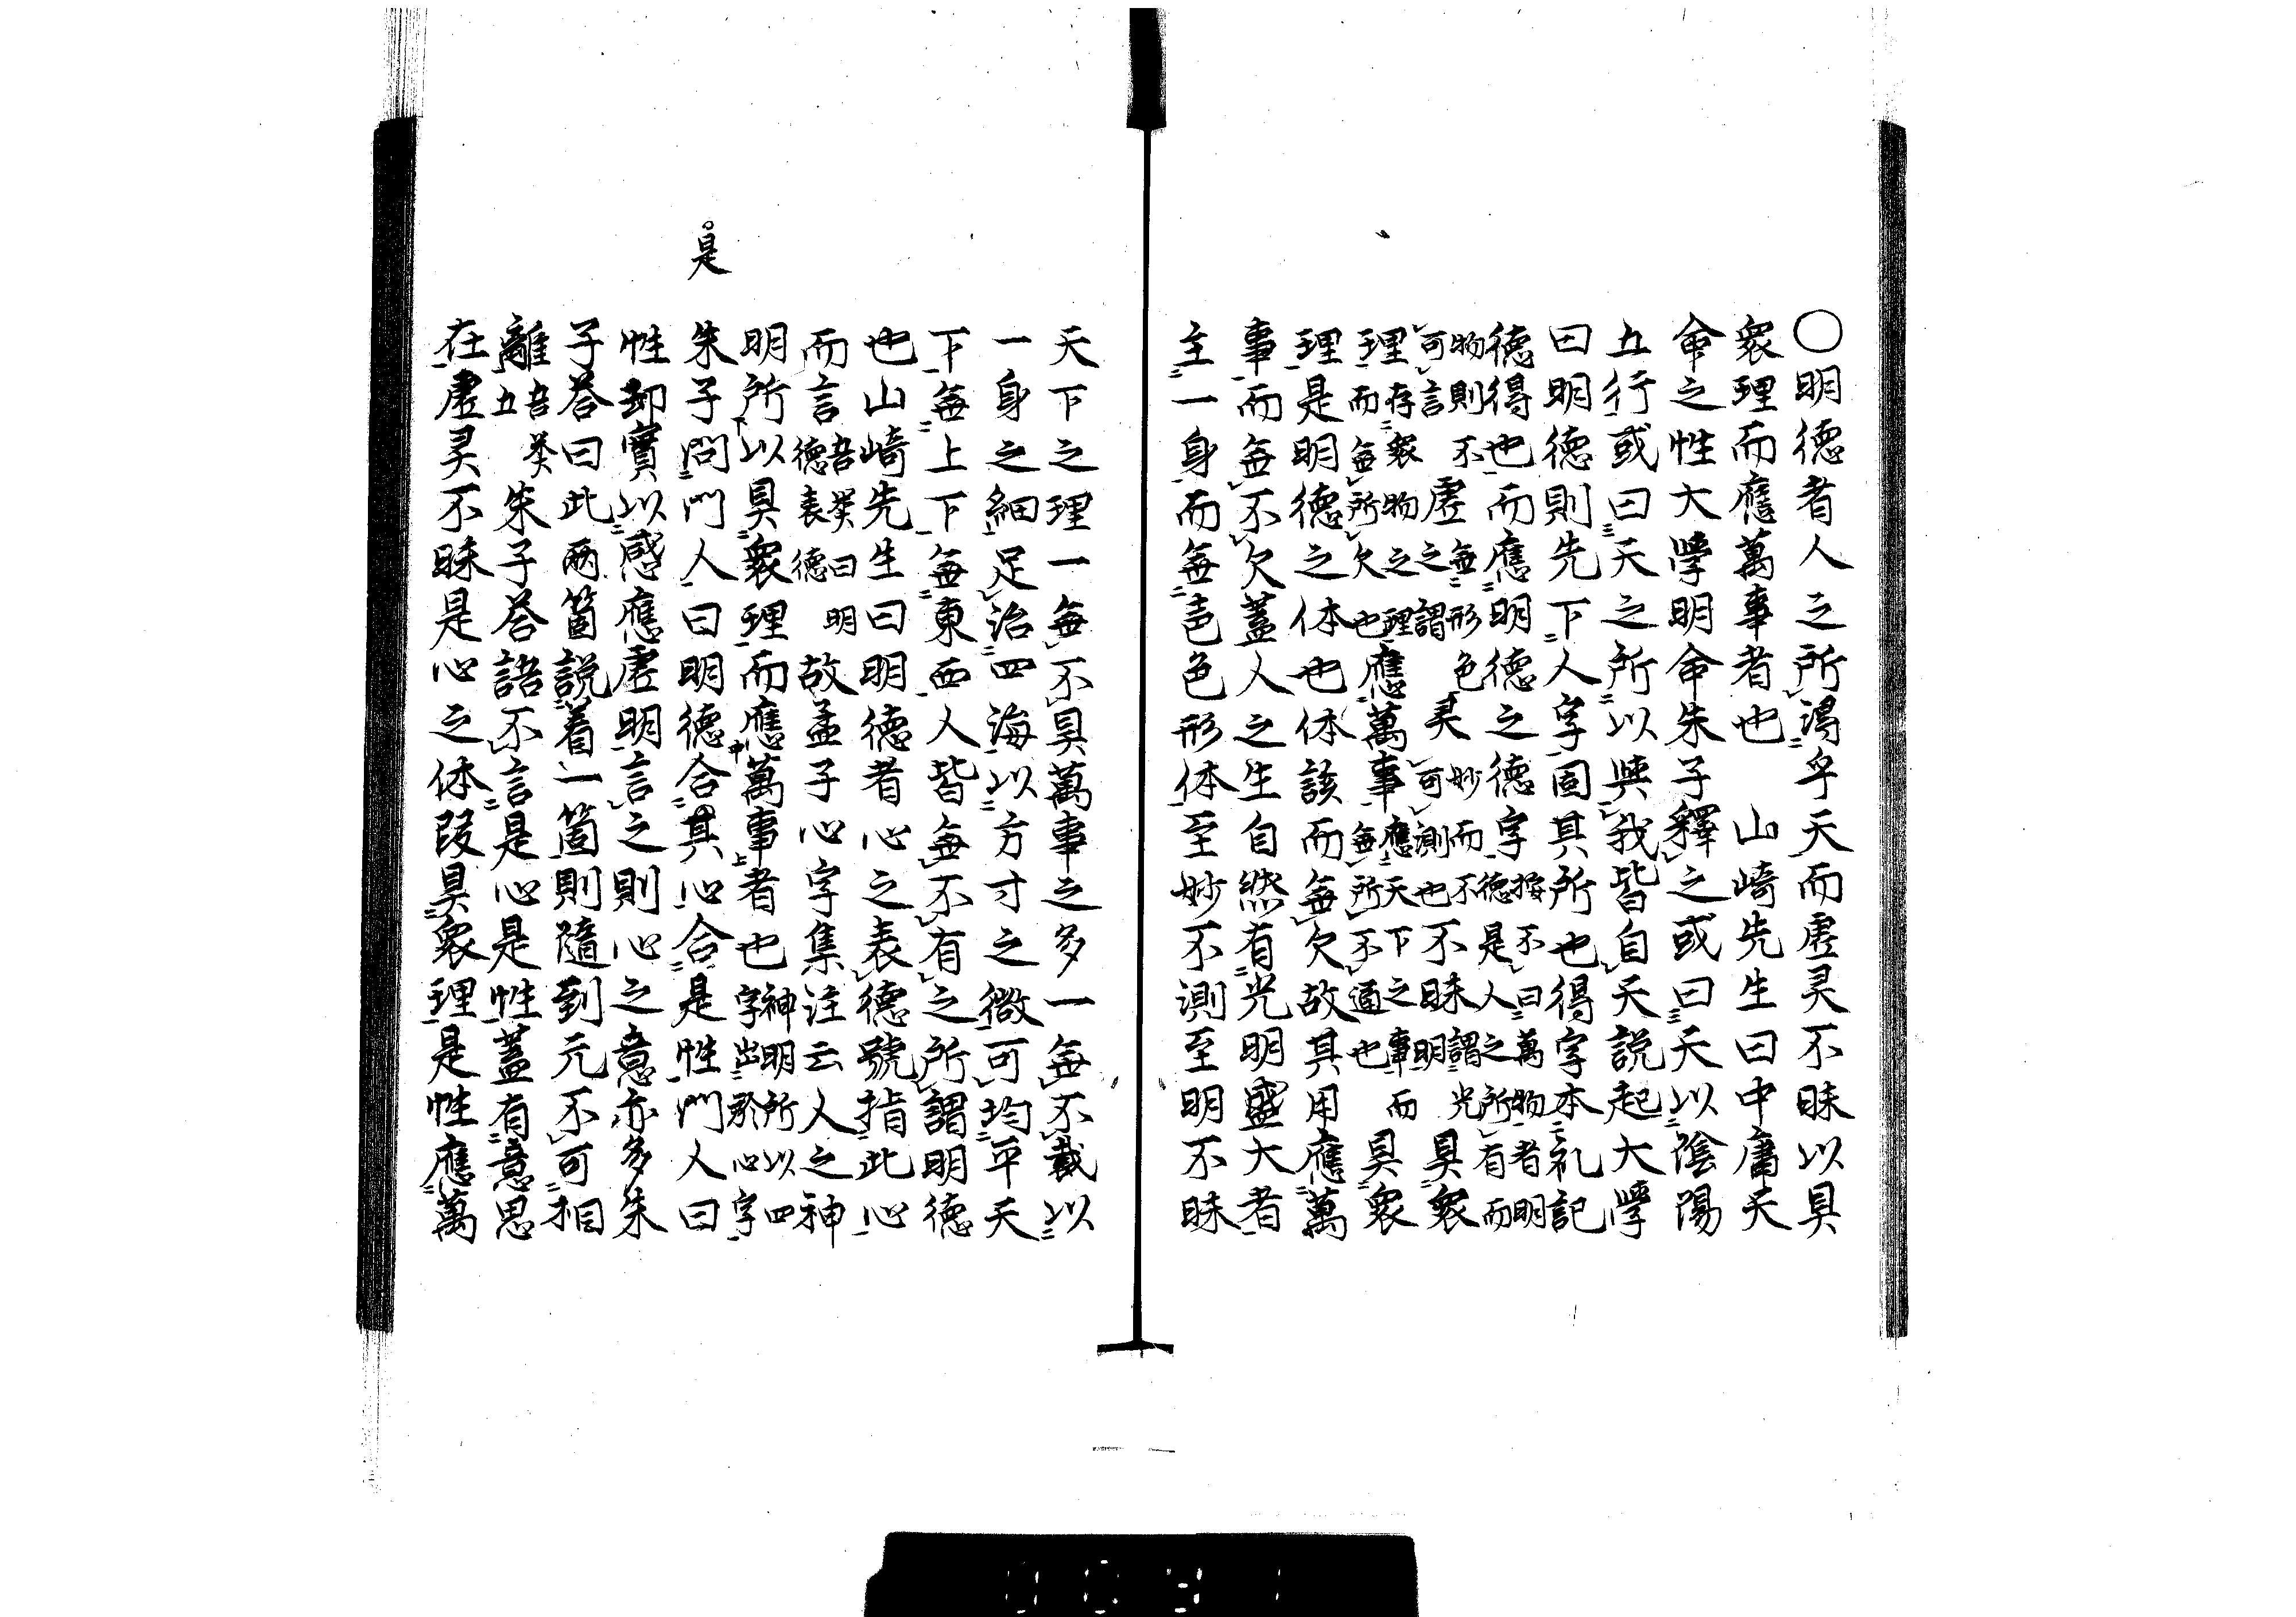 〇明徳者人之所得乎天而虚灵不昧以具
衆理而應萬事者也 山崎先生曰中庸天
命之性大學明命朱子釋之或曰天以陰陽
五行或曰天之所以與我皆自天說起大學
曰明徳則先下人字固其所也得字本礼記
徳得也而應明徳之徳字 按不曰萬物者明
徳是人之所有而
物則不 虚 無形色
可言之謂 灵 妙而不
可測也 不昧 謂光
明 具衆
理 存衆物之理
而無所欠也 應萬事 應天下之事而
無所不通也 具衆
理是明徳之体也体該而無欠故其用應萬
事而無不欠蓋人之生自然有光明盛大者
主一身而無声色形体至妙不測至明不昧
天下之理一無不具萬事之多一無不載以
一身之細足治四海以方寸之微可均平天
下無上下無東西人皆無不有之所謂明徳
也山崎先生曰明徳者心之表徳號指此心
而言 吾葵曰明
徳表徳 故孟子心字集注云人之神
明所以具衆理而應萬事者也 神明所以四
字出於心字
是
朱子問門人曰明徳合其心合是性門人曰
性却實以感應虚明言之則心之意亦多朱
子荅曰此兩箇說着一箇則隨到元不可相
離 吾葵
五 朱子荅語不言是心是性蓋有意思
在虚灵不昧是心之体段具衆理是性應萬